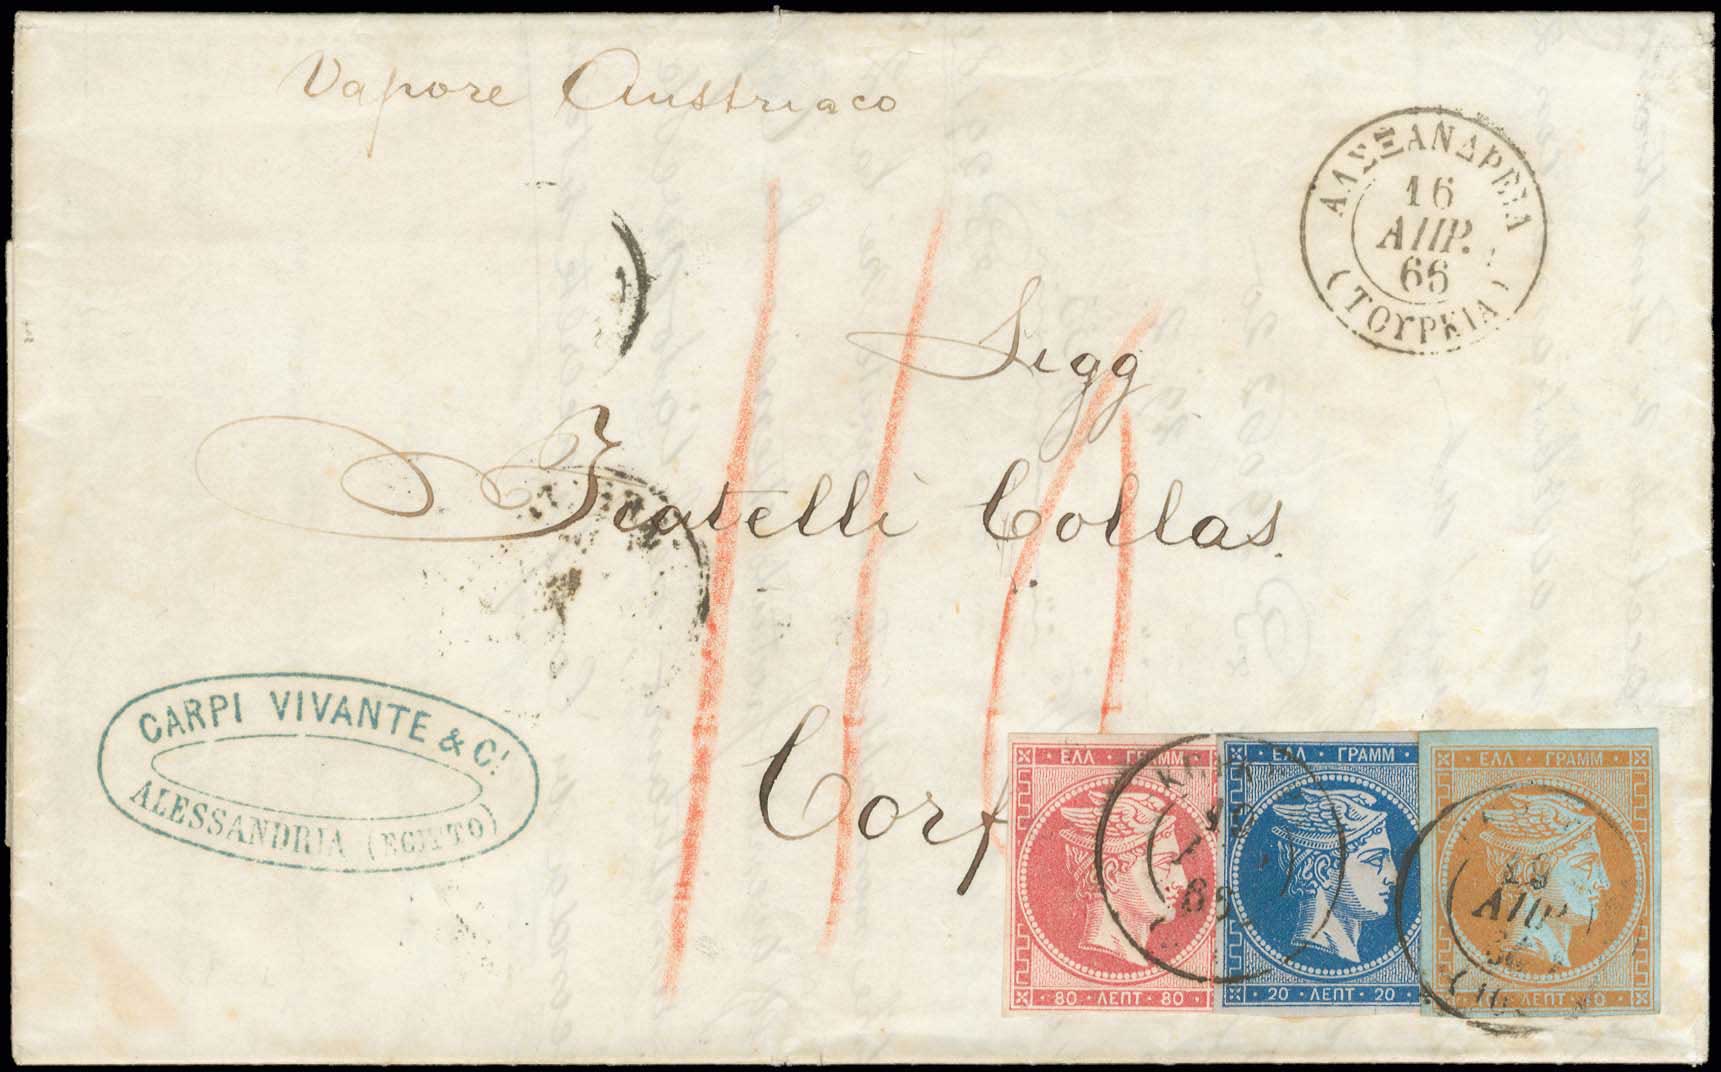 Vapore Austriaco
ΑΛΕΞΑΝΔΡΕΙΑ
16
ΑΠΡ.
66
(ΤΟΥΡΚΙΑ)
Sigg
Fratelli Collas
Corf
CARPI VIVANTE & C.
ALESSANDRIA (EGITTO)
ΕΛΛ · ΓΡΑΜΜ
80 · ΛΕΠΤ · 80
ΕΛΛ · ΓΡΑΜΜ
20 · ΛΕΠΤ · 20
ΕΛΛ · ΓΡΑΜΜ
ΛΕΠΤ
19
ΑΠΡ